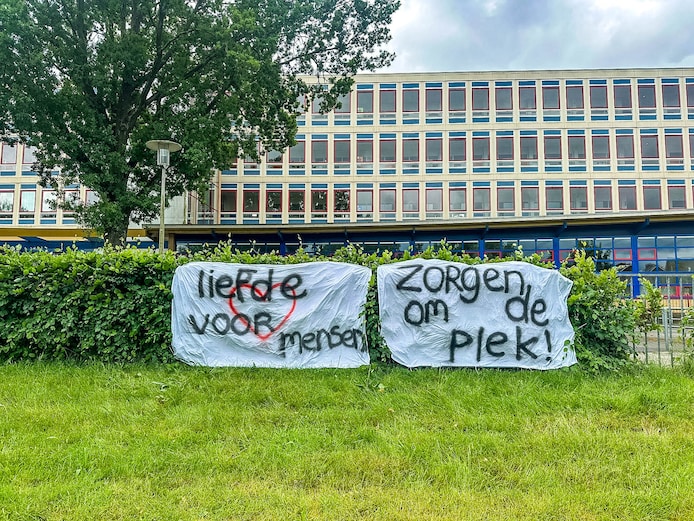 liefde
voor mensen
Zorgen,
om de
plek!